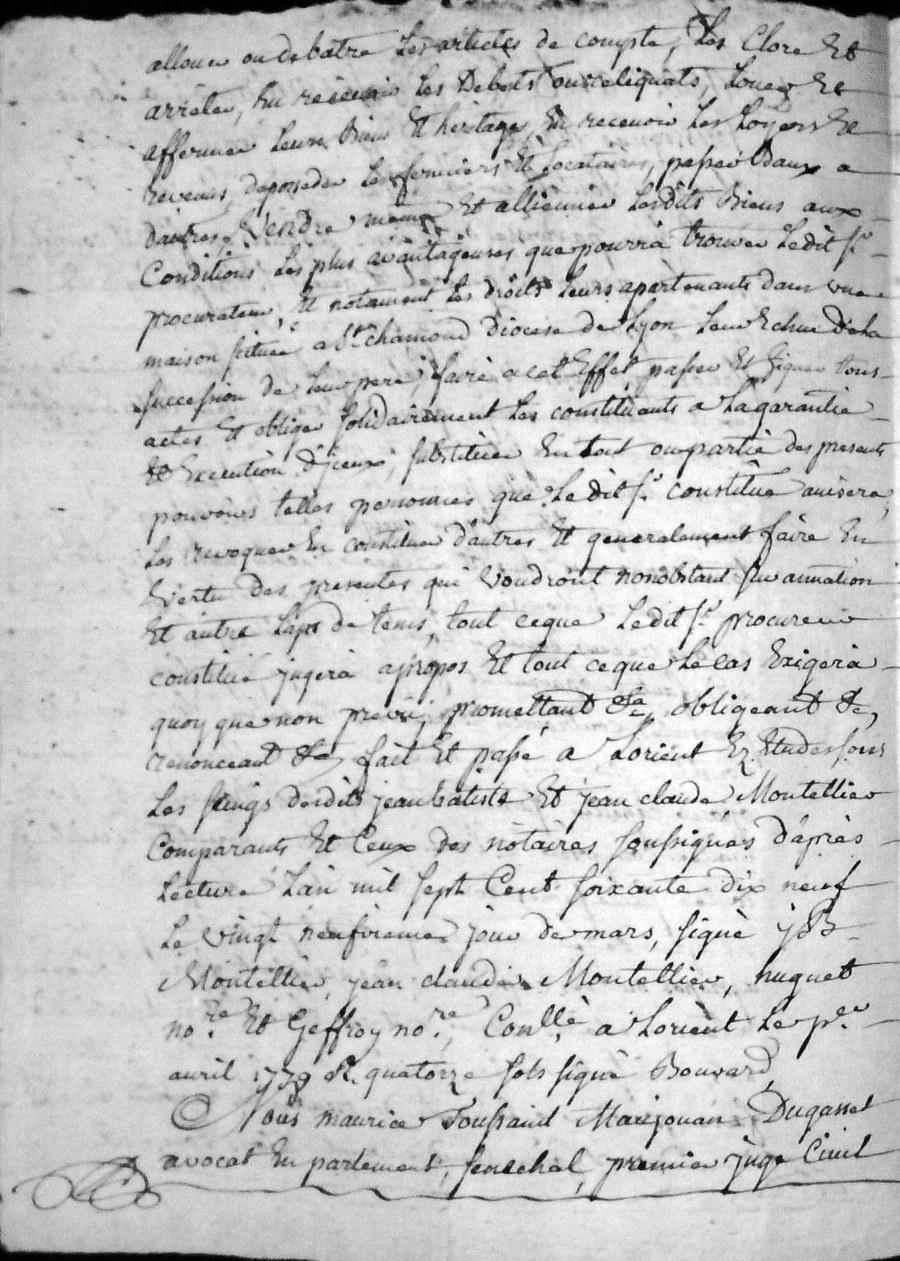 allouer ou debatre Les articles de compte, Les Clore Et
arrêter, En recevoir Les Debets ou reliquats, Louer Et
affermer Leurs Biens Et héritage, En recevoir Les Loyers Et
revenus, deposseder Les fermiers Et Locataires, passer Baux a
D'autres, Vendre même Et alliéner Lesdits Biens aux
Conditions Les plus avantageuses que pourra trouver Ledit Sr
procurateur, Et notament Les droits Leurs apartenants dans une
maison scituée a St chamond Diocese de Lyon Leur Echue De La
succession de Leur pere, faire a cet Effet, passer Et signer tous
actes Et obliger solidairement Les constituants a La garantie
Et Execution D'iceux, substituer En tout ou partie des presents
pouvoirs telles personnes que Ledit Sr constitué avisera,
Les revoquer En constituer d'autres Et generalement faire En
Vertu des presentes qui Voudront nonobstant surannation
Et autre Laps de tems, tout ceque Ledit Sr procureur
constitué jugera apropos Et tout ceque Le cas Exigera
quoy que non prevu, promettant &a, obligeant &a,
renonceant &a, fait Et passé a Lorient Ez Etudes sous
Les seings desdits jean batiste Et jean claude Montellier
Comparants Et Ceux des notaires soussignés D'après
Lecture L'an mil sept Cent soixante dix neuf
Le vingt neufvieme jour de mars, signé j B
Montellier, jean claude Montellier, huguet
nore Et Geffroy nore, Conllé a Lorient Le per
avril 1779 R. quatorze sols signé Bouvard
Nous maurice Toussaint Marjouan Dugasset
avocat En parlement, senechal, premier juge Civil